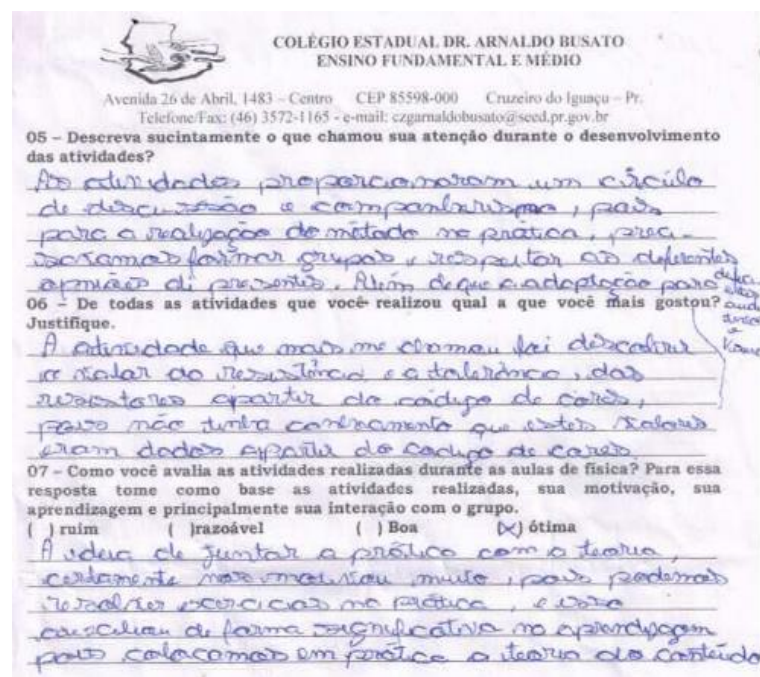 COLÉGIO ESTADUAL DR. ARNALDO BUSATO
ENSINO FUNDAMENTAL E MÉDIO
Avenida 26 de Abril, 1483 – Centro CEP 85598-000 Cruzeiro do Iguaçu – Pr.
Telefone/Fax: (46) 3572-1165 - e-mail: czgarnaldobusato@seed.pr.gov.br
05 – Descreva sucintamente o que chamou sua atenção durante o desenvolvimento
das atividades?
As atividades proporcionaram um círculo
de discussão e companherismo, pois
para a realização do método na prática, prec-
isaramos formar grupos e respeitar as diferentes
opniões di presentes. Além de que a adaptação para
06 – De todas as atividades que você realizou qual a que você mais gostou?
Justifique.
A atividade que mais me chamou foi descobrir
o valor da resistência e a tolerância, dos
resistores apartir do código de cores,
pois não tinha conhecimento que estes valores
eram dados apartir do codigo de cores.
07 – Como você avalia as atividades realizadas durante as aulas de física? Para essa
resposta tome como base as atividades realizadas, sua motivação, sua
aprendizagem e principalmente sua interação com o grupo.
( ) ruim ( )razoável ( ) Boa (x) ótima
A ideia de juntar a prática com a teoria,
certamente nos motivou muito, pois podemos
resolver exercicios na prática, e isso
auxiliou de forma significativa na aprendizagem
pois colocamos em prática a teoria do conteúdo